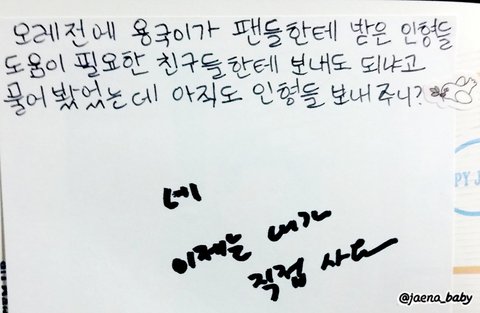 오레전에 용국이가 팬들한테 받은 인형들
도움이 필요한 친구들한테 보내도 되냐고
물어봤었는데 아직도 인형들 보내주니?
네
이제는 내가
직접 사요
PY J
@jaena_baby